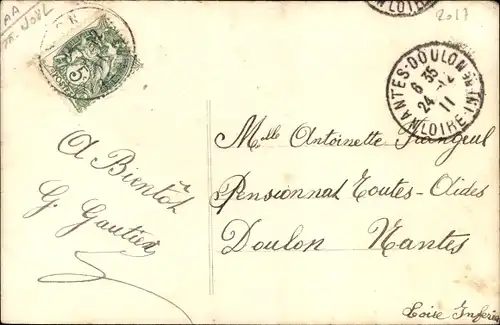 AA
JOËL
2017
5
NANTES-DOULON
6 35
24 - 12
11
LOIRE-INF
A Bientôt
G. Gautier
Mlle Antoinette
Pensionnat Toutes-Aides
Doulon Nantes
Loire Inférie